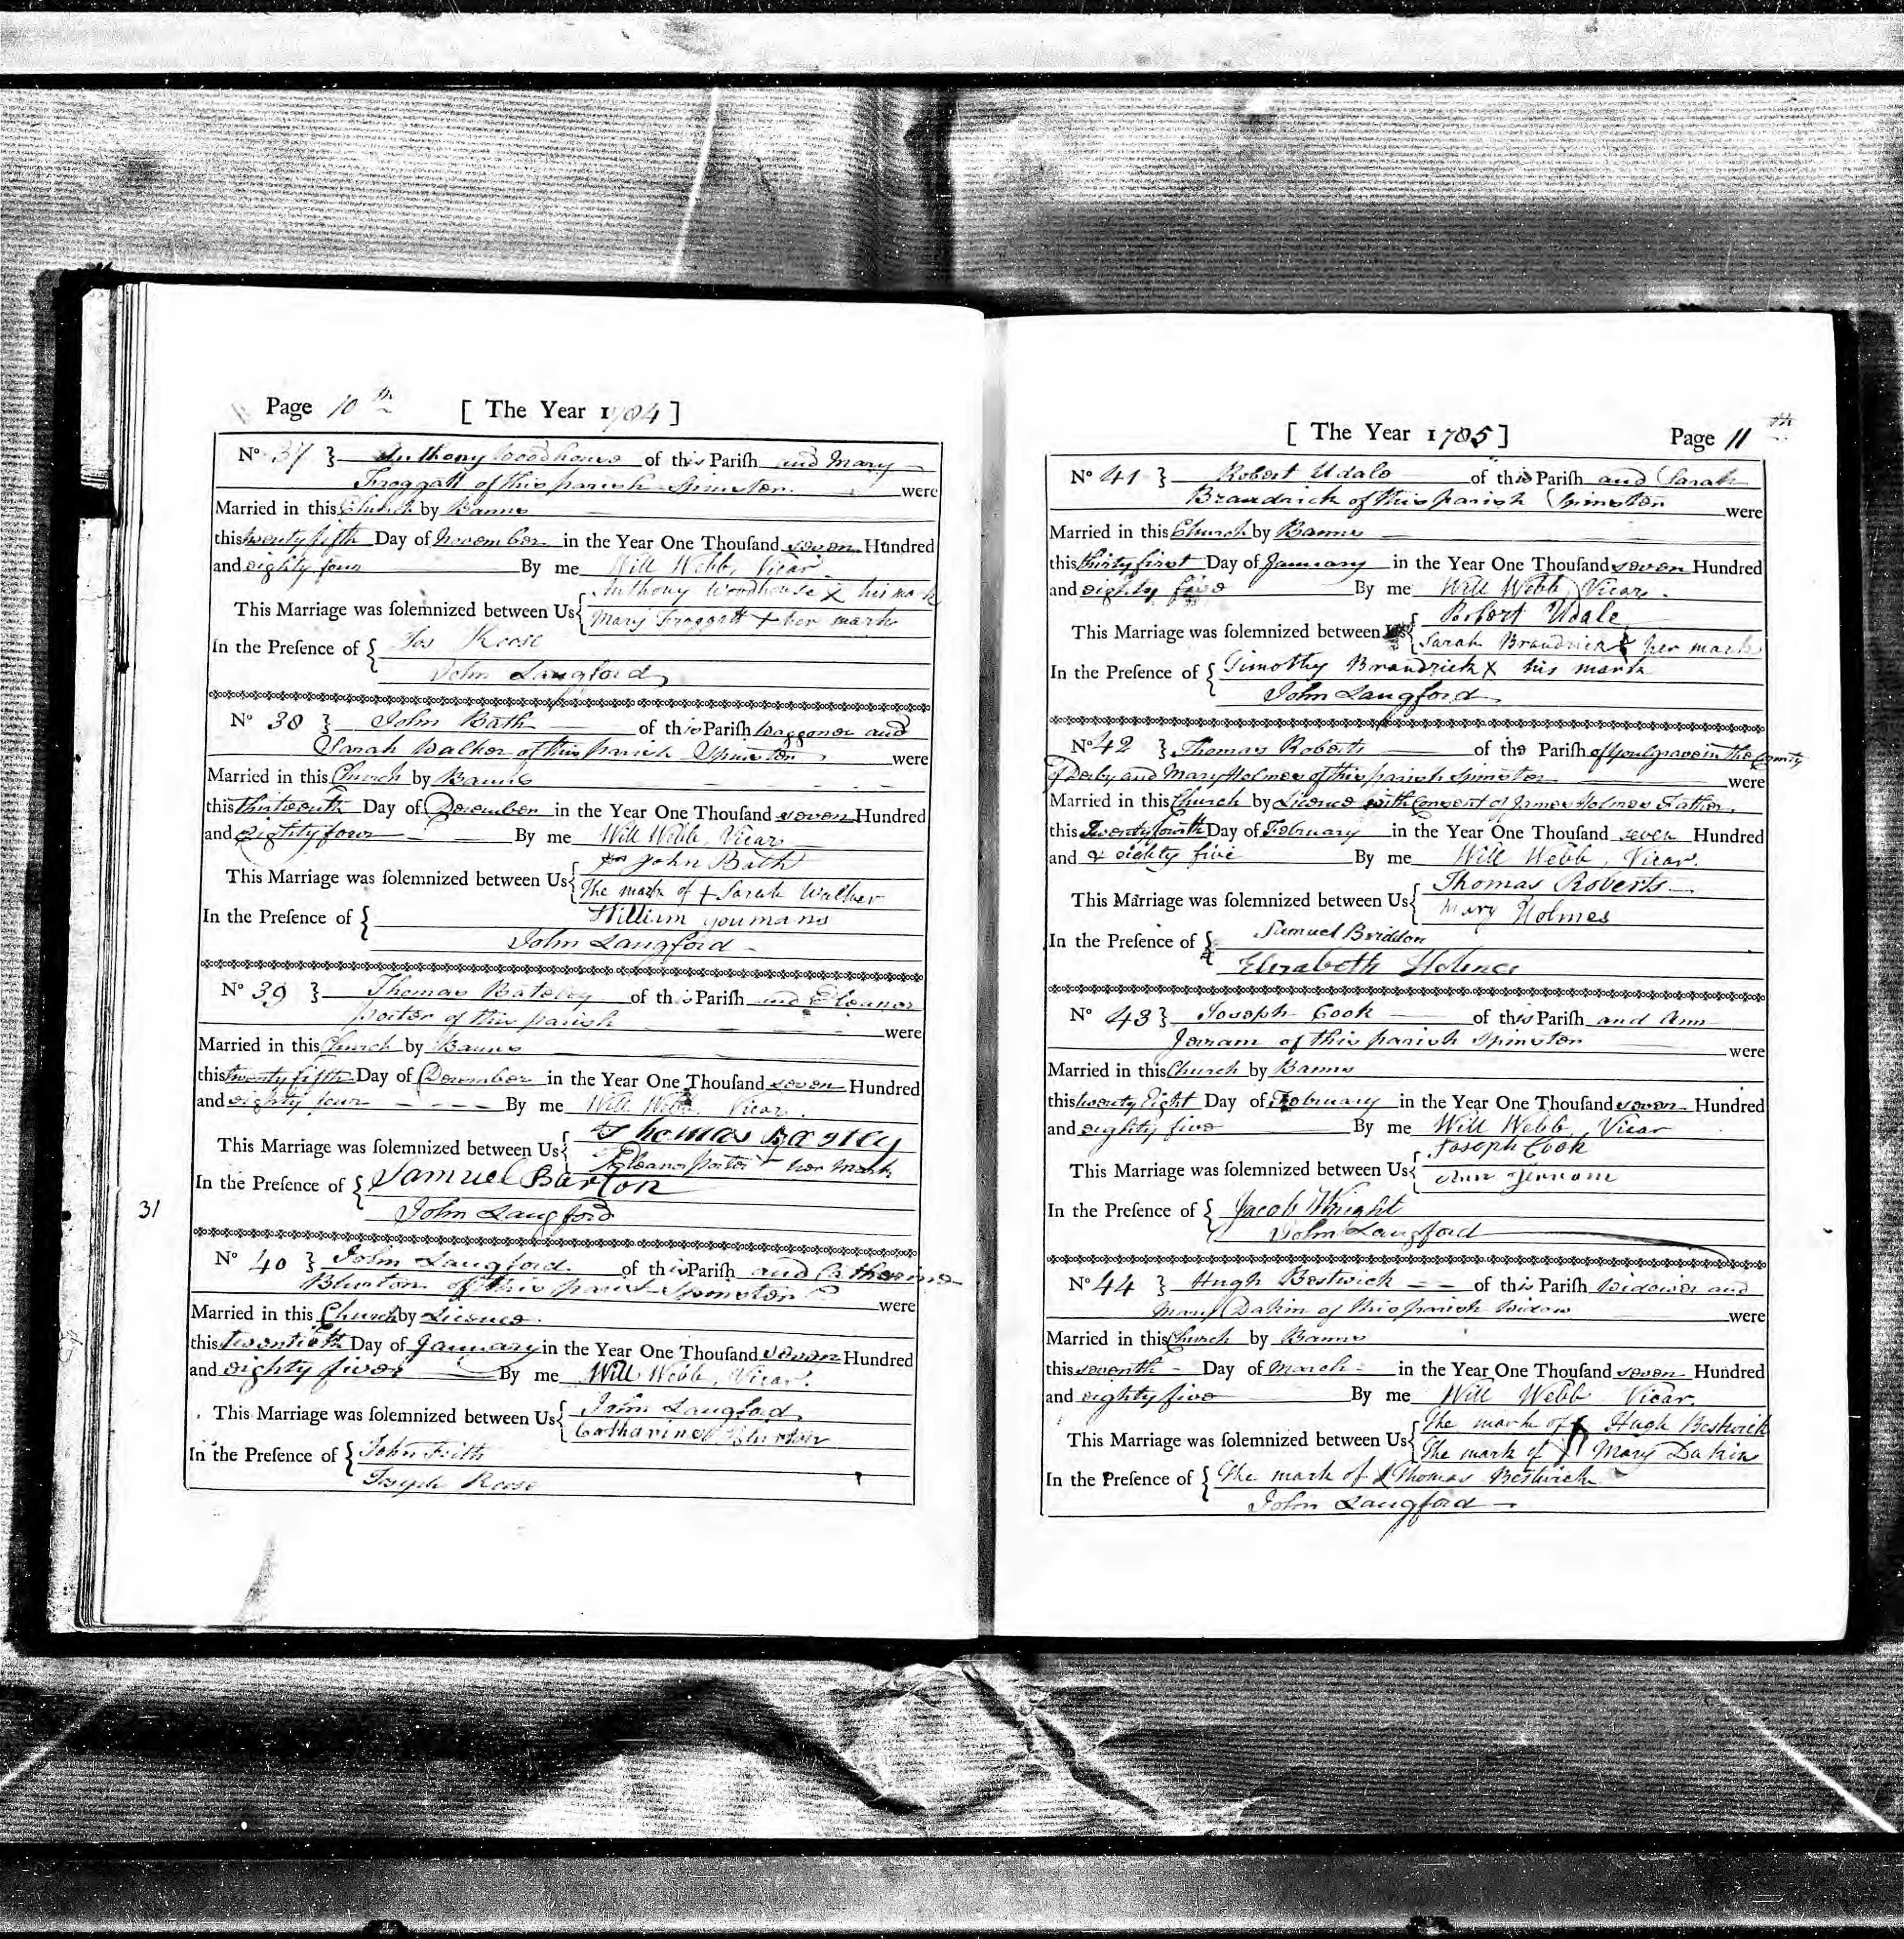 Page 10th [ The Year 1784 ]
No 37 } Anthony Woodhouse of this Pariſh and Mary
Froggatt of this parish Spinster were
Married in this Church by Banns
this twenty fifth Day of November in the Year One Thouſand seven Hundred
and eighty four By me Will Webb, Vicar
This Marriage was ſolemnized between Us { Anthony Woodhouse X his mark
Mary Froggatt + her mark
In the Preſence of { Jos Roose
John Langford
No 38 } John Bath of this Pariſh Waggoner and
Sarah Walker of this parish Spinster were
Married in this Church by Banns
this thirteenth Day of December in the Year One Thouſand seven Hundred
and eighty four By me Will Webb Vicar
This Marriage was ſolemnized between Us { John Bath
The mark of + Sarah Walker
In the Preſence of { William youmans
John Langford
No 39 } Thomas Bateley of this Pariſh and Eleanor
porter of this parish were
Married in this Church by Banns
this twenty fifth Day of December in the Year One Thouſand seven Hundred
and eighty four By me Will Webb Vicar.
This Marriage was ſolemnized between Us { Thomas
Eleanor porter + her mark
In the Preſence of { Samuel Barton
31
John Langford
No 40 } John Langford of this Pariſh and Catharine
of this parish Spinster were
Married in this Church by Licence.
this twentieth Day of January in the Year One Thouſand seven Hundred
and eighty five By me Will Webb, Vicar.
This Marriage was ſolemnized between Us { John Langford
Catharine
In the Preſence of { John Frith
Joseph Roose
[ The Year 1785 ] Page 11th
No 41 } Robert Udale of this Pariſh and Sarah
Brandrick of this parish Spinster were
Married in this Church by Banns
this thirty first Day of January in the Year One Thouſand seven Hundred
and eighty five By me Will Webb Vicar.
This Marriage was ſolemnized between Us { Robert Udale
Sarah Brandrick X her mark
In the Preſence of { Timothy Brandrick X his mark
John Langford
No 42 } Thomas Roberts of the Pariſh of Youlgrave in the County
of Derby and Mary Holmes of this parish Spinster were
Married in this Church by Licence with Consent of James Holmes Father,
this Twenty fourth Day of February in the Year One Thouſand seven Hundred
and & eighty five By me Will Webb, Vicar.
This Marriage was ſolemnized between Us { Thomas Roberts
Mary Holmes
In the Preſence of { Samuel Briddon
Elizabeth Holmes
No 43 } Joseph Cook of this Pariſh and Ann
Jerram of this parish Spinster were
Married in this Church by Banns
this twenty Eight Day of February in the Year One Thouſand seven Hundred
and eighty five By me Will Webb, Vicar
This Marriage was ſolemnized between Us { Joseph Cook
Ann
In the Preſence of { Jacob Wright
John Langford
No 44 } Hugh Bestwick of this Pariſh Widower and
Mary Dakin of this parish Widow were
Married in this Church by Banns
this seventh Day of March in the Year One Thouſand seven Hundred
and eighty five By me Will Webb Vicar.
This Marriage was ſolemnized between Us { The mark of Hugh Bestwick
The mark of Mary Dakin
In the Preſence of { The mark of X Thomas Bestwick
John Langford